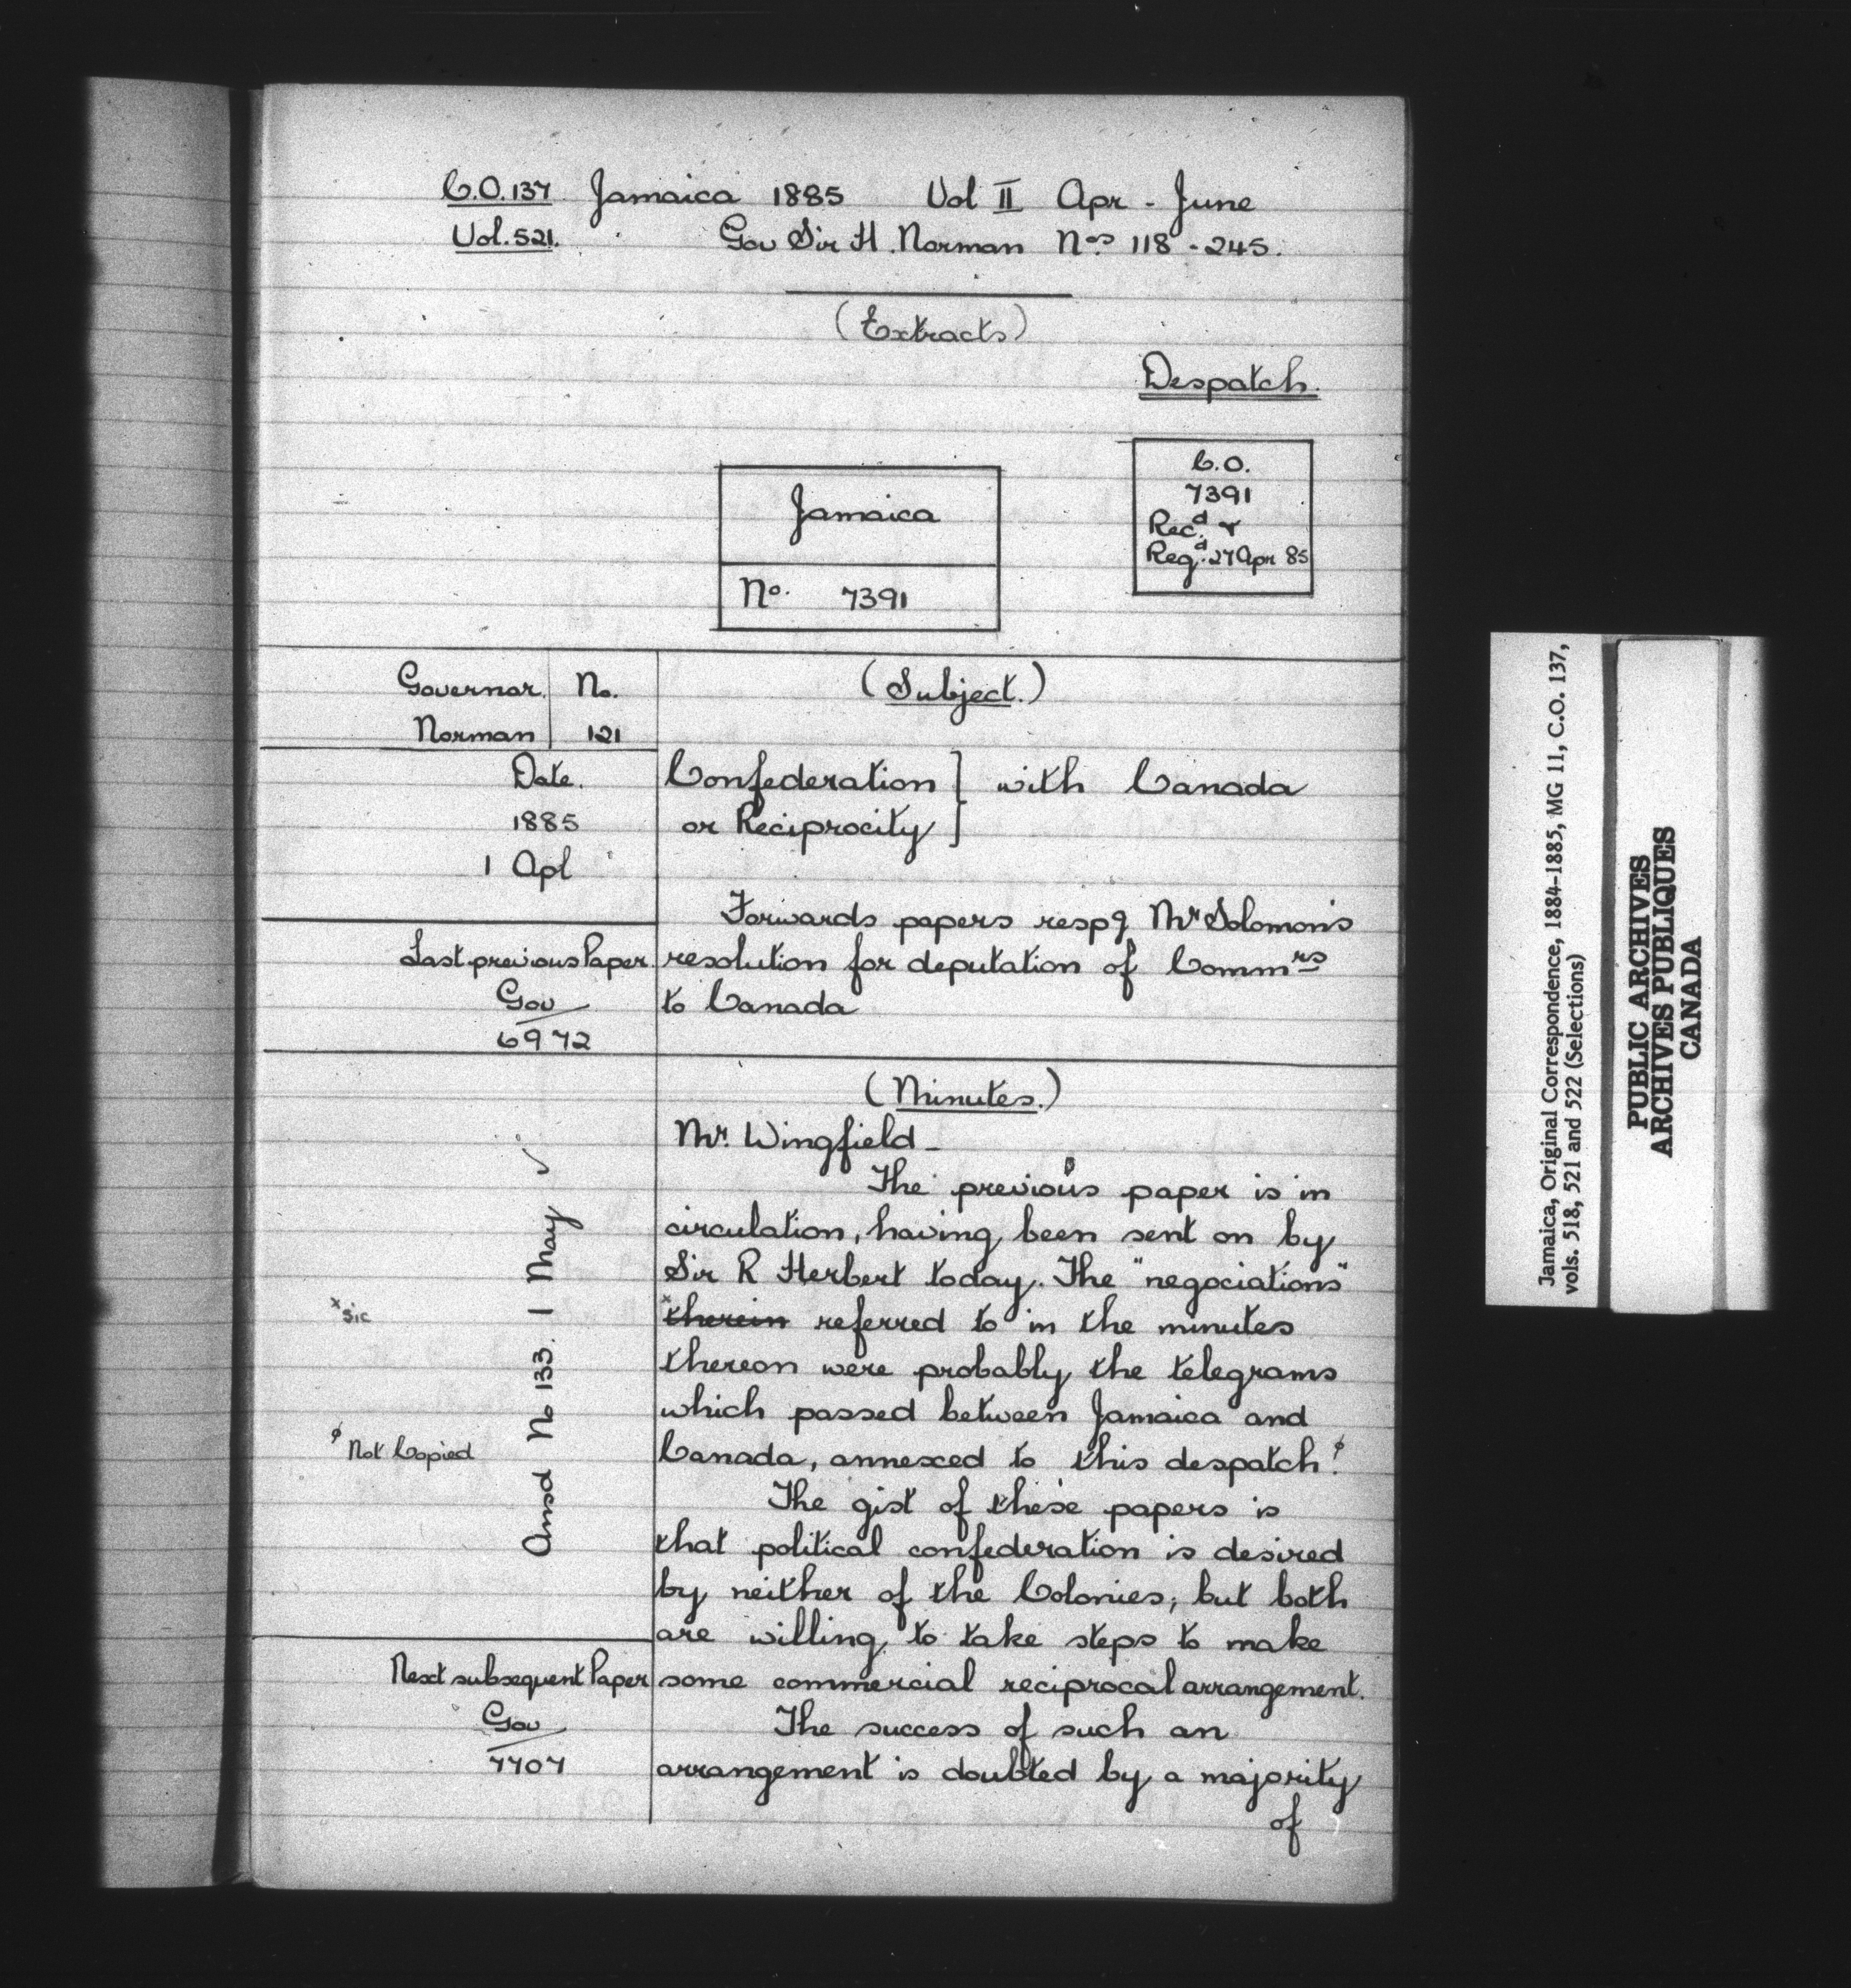 C.O.137 Jamaica 1885 Vol II Apr - June
Vol. 521. Gov Sir H. Norman Nos 118 - 245.
(Extracts)
Despatch.
C.O.
7391
Recd &
Regd. 27 Apr 85
Jamaica
No. 7391
Governor. No.
Norman 121
Date.
1885
1 Apl
Last previous Paper
Gov
6972
(Subject.)
Confederation } with Canada
or Reciprocity }
Forwards papers respg Mr Solomon's
resolution for deputation of Commrs
to Canada
(Minutes.)
Mr. Wingfield -
The previous paper is in
circulation, having been sent on by
Sir R Herbert today. The "negociations"
x therein referred to in the minutes
thereon were probably the telegrams
which passed between Jamaica and
Canada, annexed to this despatch. ϕ
The gist of these papers is
that political confederation is desired
by neither of the Colonies; but both
are willing to take steps to make
some commercial reciprocal arrangement.
The success of such an
arrangement is doubted by a majority
of
x sic
ϕ Not Copied
Ansd No 133. 1 May ✓
Next subsequent Paper
Gov
7707
Jamaica, Original Correspondence, 1884-1885, MG 11, C.O. 137,
vols. 518, 521 and 522 (Selections)
PUBLIC ARCHIVES
ARCHIVES PUBLIQUES
CANADA